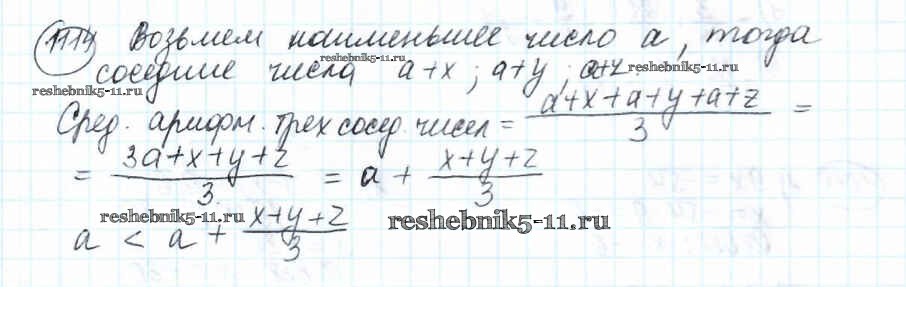 1114 Возьмем наименьшее число a, тогда
reshebnik5-11.ru
соседние числа a+x; a+y; a+z.
reshebnik5-11.ru
reshebnik5-11.ru
Сред. арифм. трех сосед. чисел = (a+x+a+y+a+z)/3 =
= (3a+x+y+z)/3 = a + (x+y+z)/3
reshebnik5-11.ru
reshebnik5-11.ru
a < a + (x+y+z)/3